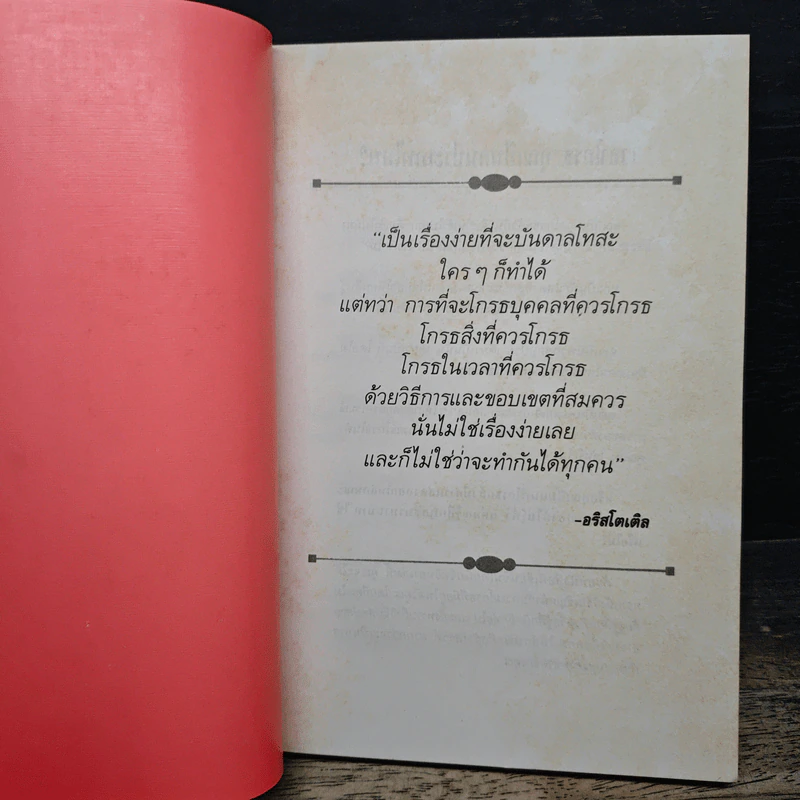 “เป็นเรื่องง่ายที่จะบันดาลโทสะ
ใคร ๆ ก็ทำได้
แต่ทว่า การที่จะโกรธบุคคลที่ควรโกรธ
โกรธสิ่งที่ควรโกรธ
โกรธในเวลาที่ควรโกรธ
ด้วยวิธีการและขอบเขตที่สมควร
นั่นไม่ใช่เรื่องง่ายเลย
และก็ไม่ใช่ว่าจะทำกันได้ทุกคน”
-อริสโตเติล